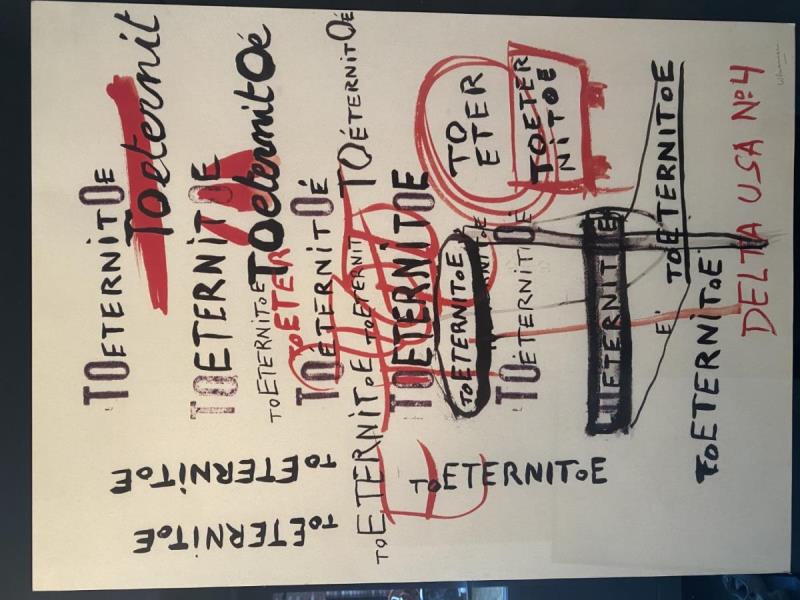 TOETERNiTOE
TOeternit
TOETERNiTOE
TOeternitOé
TOETERNiTOE
TOETER
TOETERNiTOÉ
TOÉTERNiTOÉ
TOETERNIT
TOETERNiTOE
TOETERNiTOE
TOETERNiTOE
TO
ETER
TOETER
NiTOE
TOÉTERNiTOÉ
ETERNiT
E'
TOETERNiTOE
TOETERNiTOE
DELTA USA No:4
TOETERNiTOE
TOETERNiTOE
TOETERNiTOE